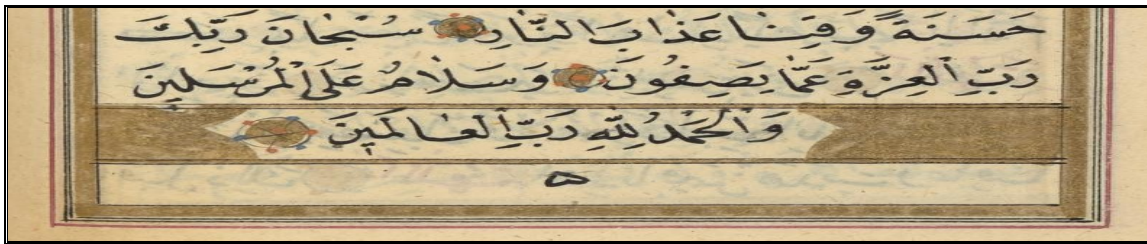 حَسَنَةً وَقِنَا عَذَابَ النَّارِ سُبْحَانَ رَبِّكَ
رَبِّ الْعِزَّةِ عَمَّا يَصِفُونَ وَسَلَامٌ عَلَى الْمُرْسَلِينَ
وَالْحَمْدُ لِلَّهِ رَبِّ الْعَالَمِينَ
۵